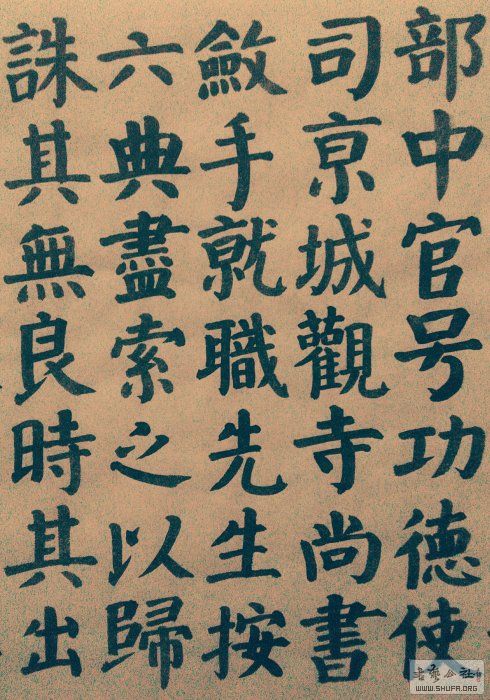 部中官号功德使
司京城觀寺尚書
斂手就職先生按
六典盡索之以歸
誅其無良時其出
WWW.SHUFA.ORG